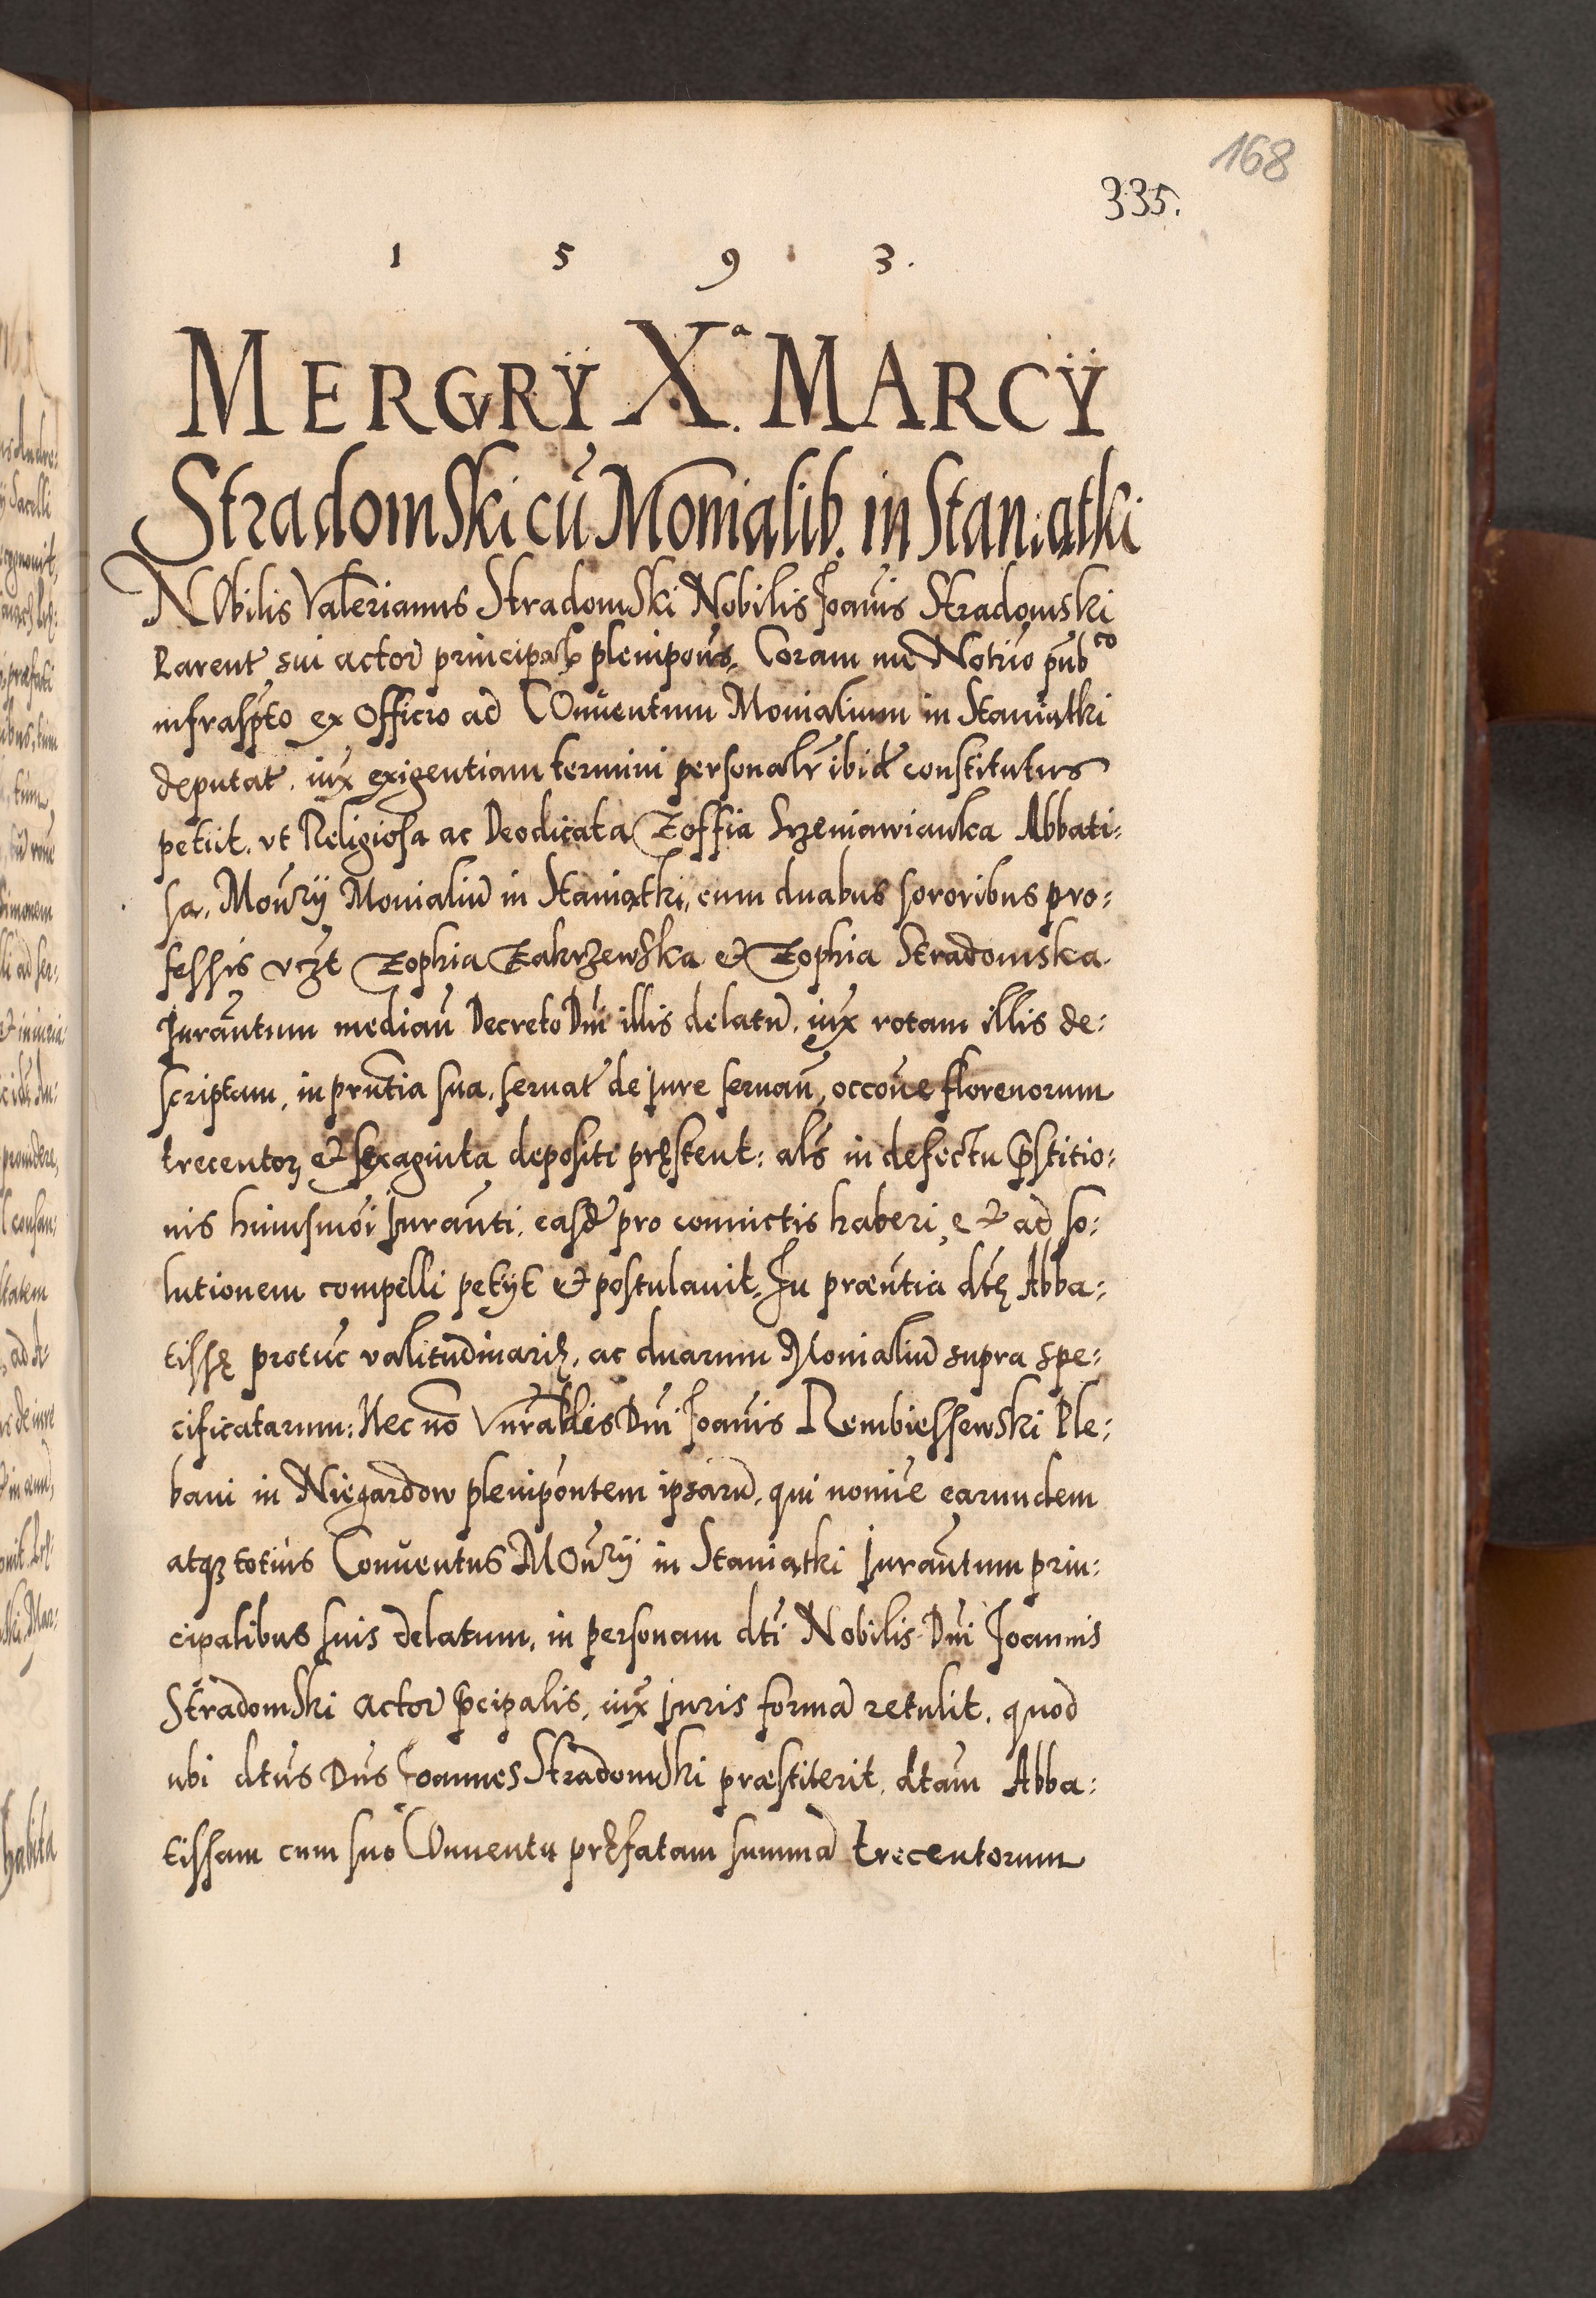 168
335.
1 5 9 3.
MERCVRÿ Xª. MARCÿ
StradomSki cū Monialib. in Staniątki
NObilis Valerianus StradomSki Nobilis Joānis Stradomski
Parent sui actor̄ principal plenipoñs, Coram me Notr̄io pūb co
infrasp̄to ex Officio ad COnūentum Monialium in Staniątki
deputat. iux̄ exigentiam termini personalr̄ ibid̄ constitutus
petiit. vt Religiosa ac Deodicata Zoffia Srzeniawianka Abbati:
sa, Mon̄rÿ Monialiū in Staniątki, cum duabus sororibus pro:
fessis vcz̄t Zophia ZakrzewSka et Zophia Stradomska
Jurān̄tum median̄ Decreto Dn̄i illis delatū. iux̄ rotam illis de:
scriptam, in prn̄tia sua, seruat̄ de jure seruan̄, occōne florenorum
trecentorꝫ et sexaginta depositi pręstent: als̄ in defectu p̄stitio:
nis huiusmōi Juran̄ti. easd̄ pro conuictis haberi, et ad so:
lutionem compelli petÿt et postulauit, In præn̄tia dtę̄ Abba:
tissę protūc valitudinarię, ac duarum Monialiū supra spe:
cificatarum: Nec nō Vn̄rablis Dn̄i Joānis Rembiessewski Ple:
bani in Niegardow plenipōntem ipsarū, qui nomīe earundem
atqꝫ totius Conūentus MOn̄rÿ in Staniątki Juran̄tum prin:
cipalibus suis delatum, in personam dtī Nobilis Dn̄i Joannis
StradomSki actor̄ p̄cipalis, iux̄ juris formā retulit. quod
ubi dtūs Dn̄s Joannes StradomSki præstiterit, dtām Abba:
tissam cum suo COnuentu pręfatam summā trecentorum